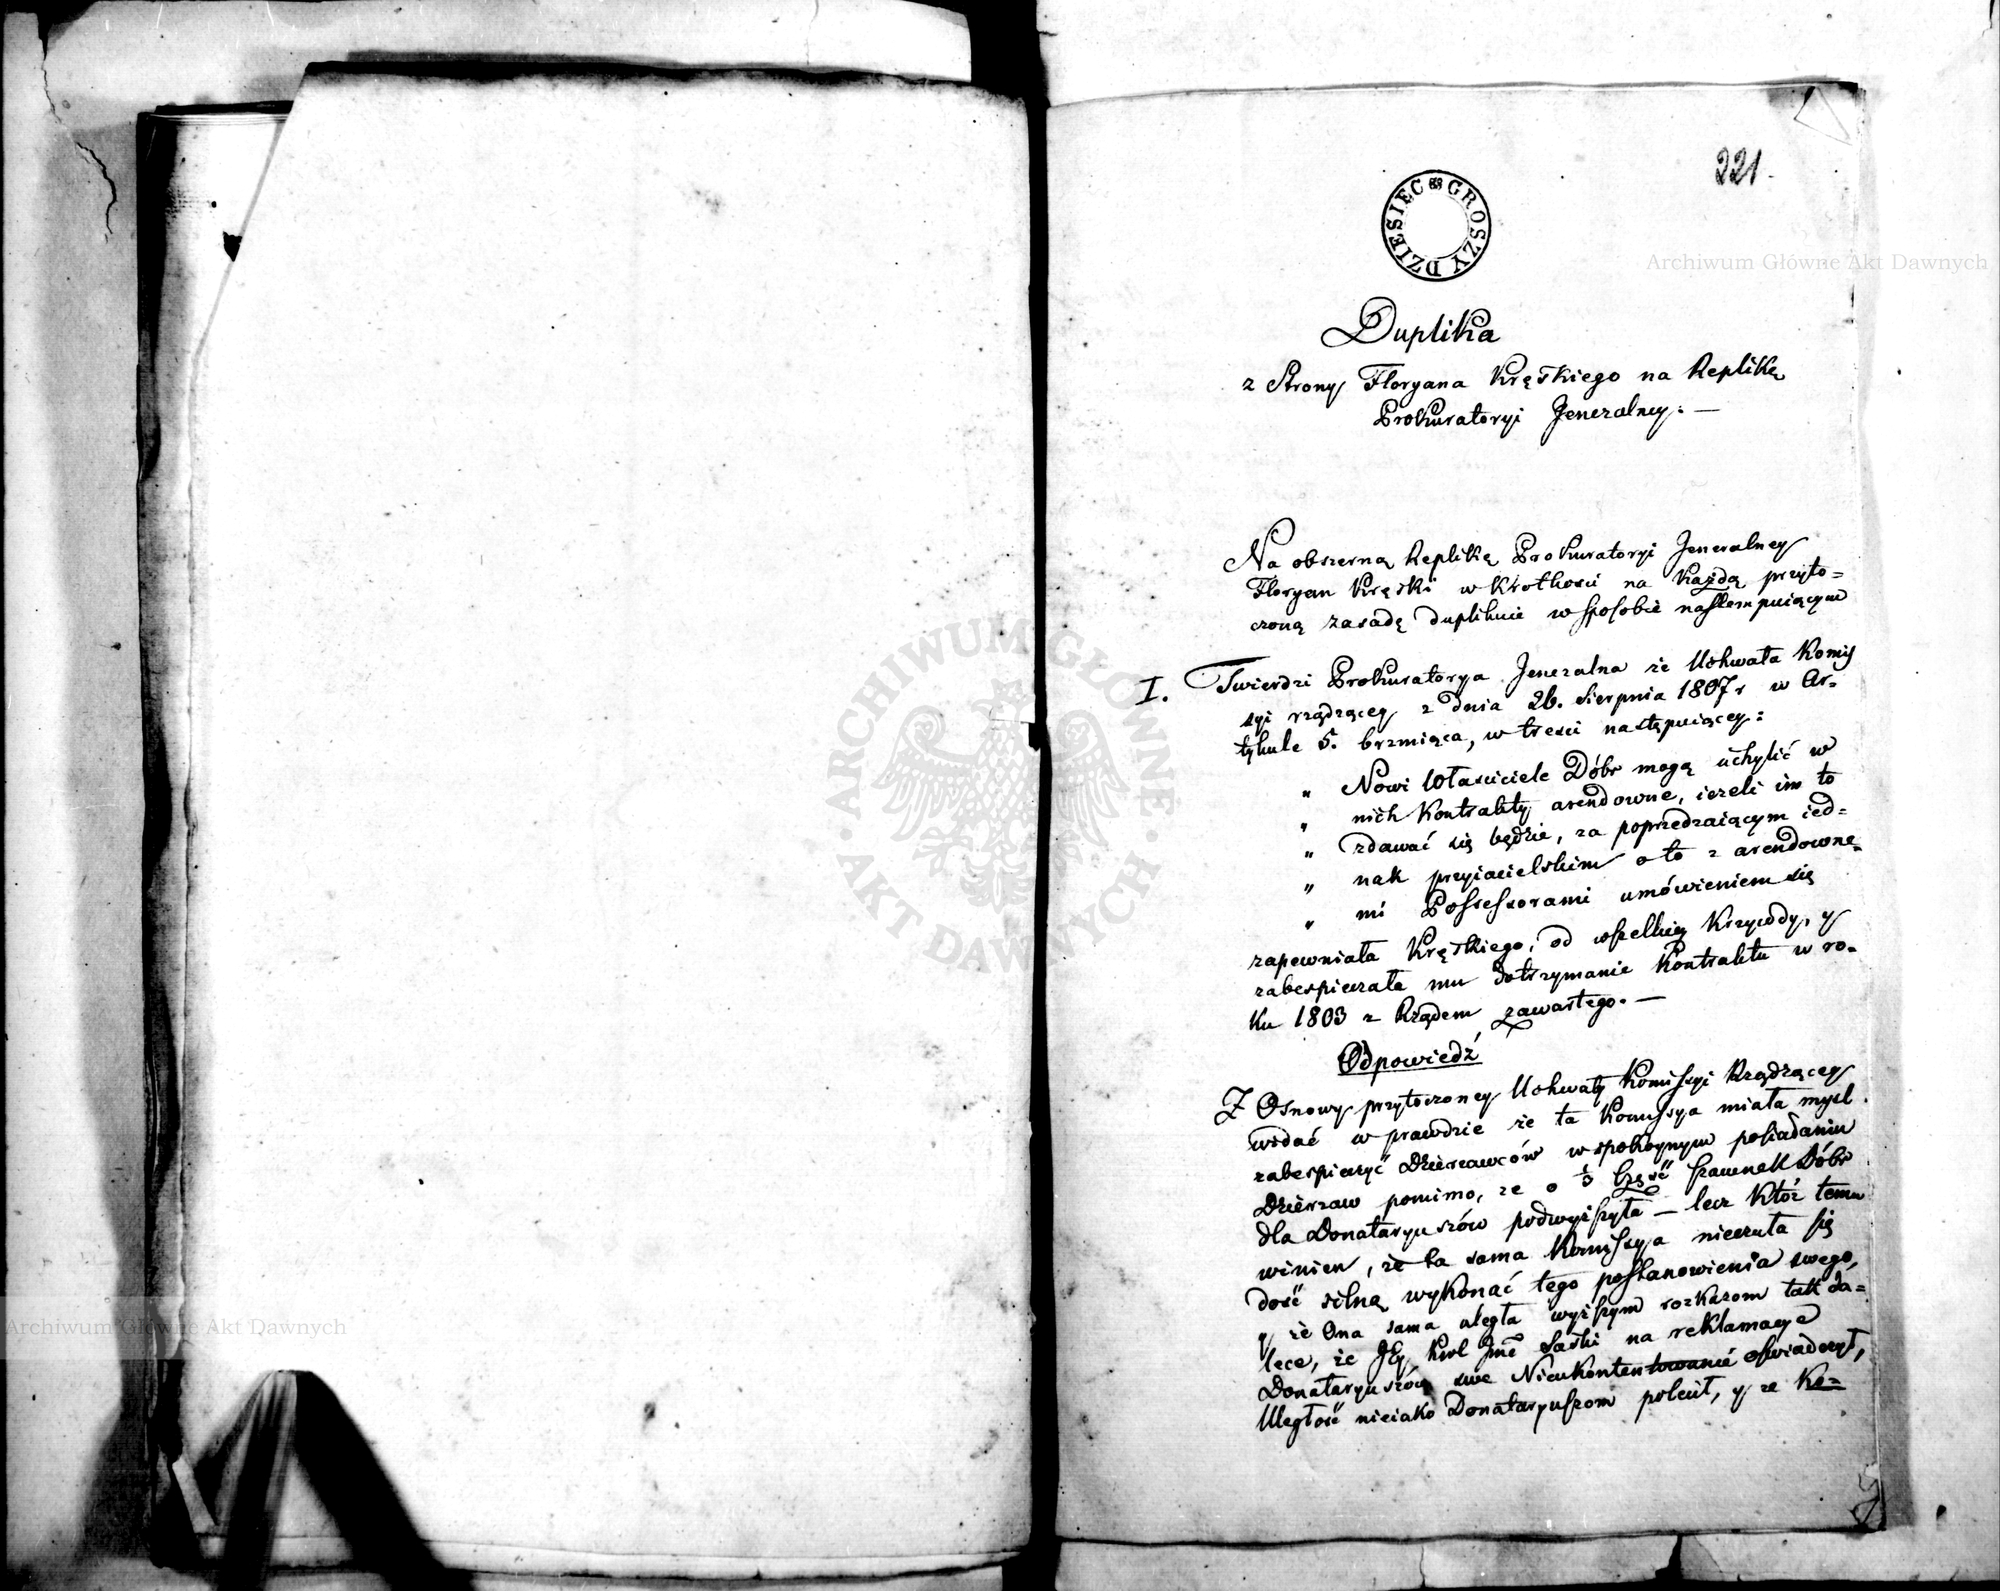 221.
GROSZY DZIESIEC
Archiwum Główne Akt Dawnych
Duplika
z Strony Floryana Kręskiego na Replikę
Prokuratoryi Jeneralney. —
Na obszerną Replikę Prokuratoryi Jeneralney
Floryan Kręski w Krotkosci na Każdą przyto=
czoną zasadę duplikuie w sposobie nastempuiącym
I. Twierdzi Prokuratorya Jeneralna że Uchwała Komis
syi rządzącey z dnia 26. Sierpnia 1807 r w Ar=
tykule 5. brzmiąca, w tresci następuiącey:
„ Nowi Właściciele Dóbr mogą uchylić w
„ nich Kontrakty arendowne, ieżeli im to
„ zdawać się będzie, za poprzedzaiącym ied=
„ nak przyiacielskim o to z arendowne=
„ mi Possessorami umówieniem się
zapewniała Kręskiego, od wszelkiey Krzywdy, y
zabespieczała mu dotrzymanie Kontraktu w ro=
Ku 1803 z Rządem zawartego. —
Odpowiedź
Z Osnowy przytoczoney Uchwały Komissyi Rządzącey
widać w prawdzie że ta Komissya miała mysl
zabespieczyć Dzierzawców w spokoynym posiadaniu
Dzierzaw pomimo, ze o 1/3 Część szacunek Dóbr
dla Donataryuszów podwyższyła — lecz Któż temu
winien, że ta sama Komissya nieczuła się
dość silną wykonać tego postanowienia swego,
y że Ona sama uległa wyższym rozkazom tak da=
lece, że JEy Krol Jmć Saski na reklamacye
Donataryuszów swe Nieukontentowanie oświadczył,
Uległość nieiako Donataryuszom polecił, y ze Ko=
ARCHIWUM GŁÓWNE AKT DAWNYCH
Archiwum Główne Akt Dawnych